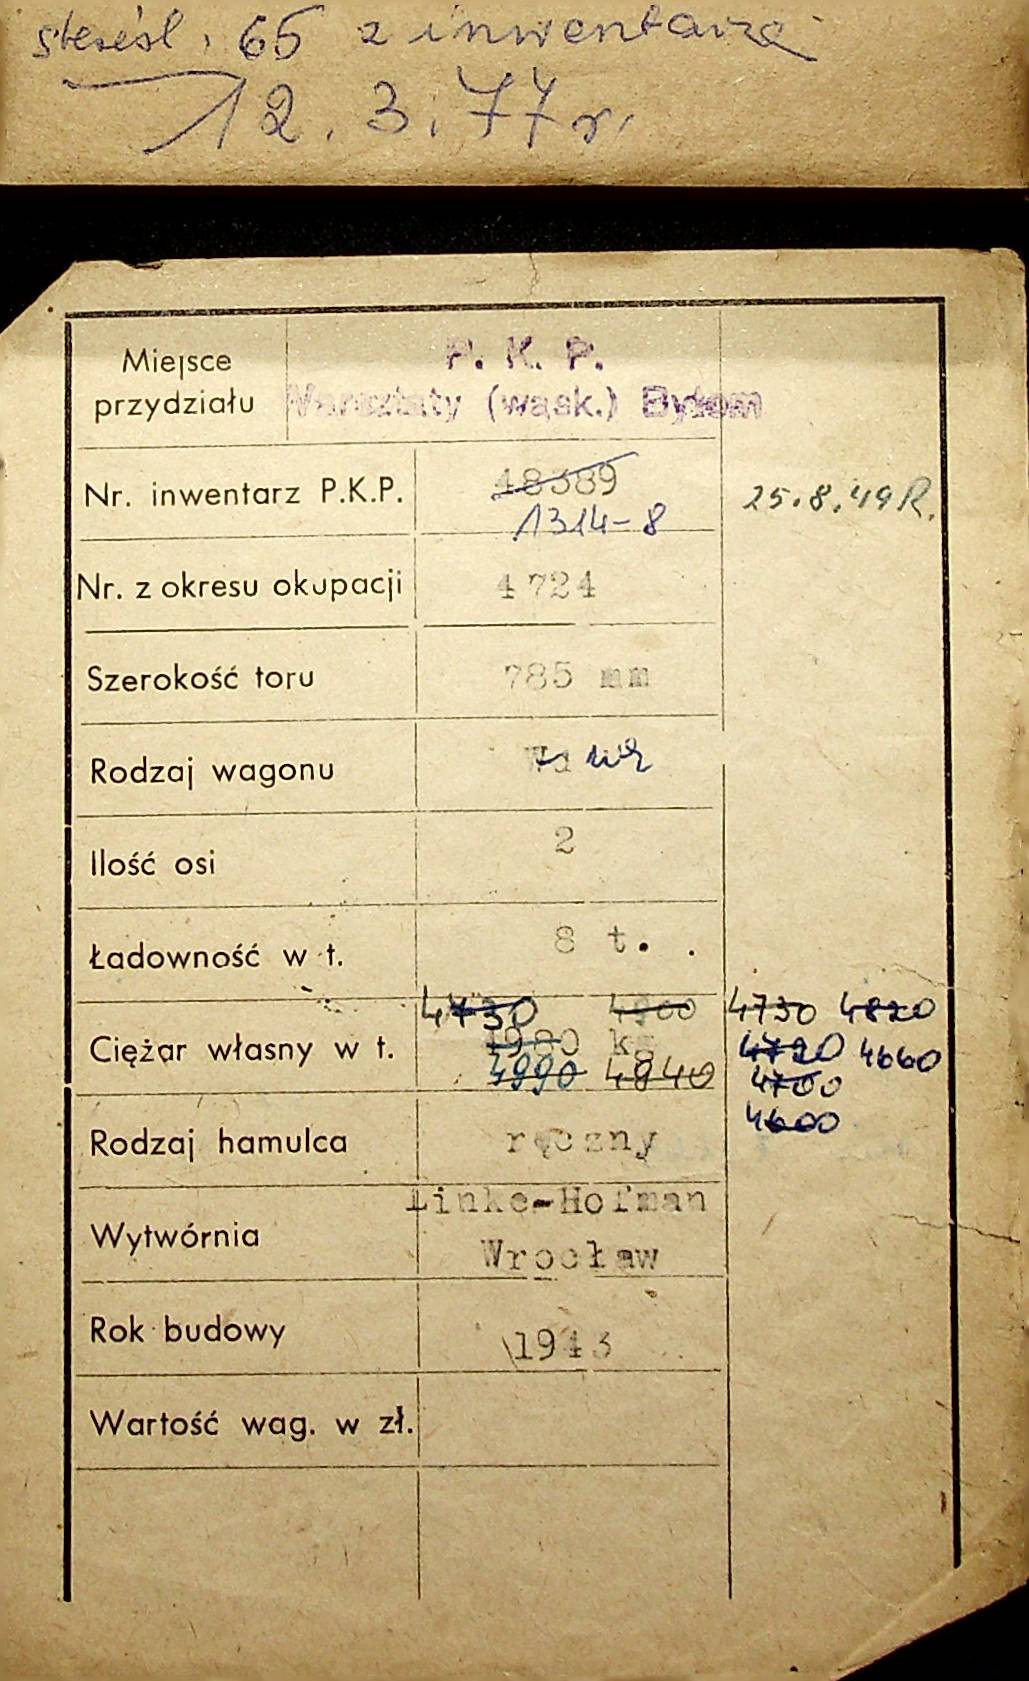 skreśl. 65 z inwentarza
12.3.77r.
Miejsce przydziału P. K. P.
Warsztaty (wąsk.) Bytom
Nr. inwentarz P.K.P. 18389
1314-8
25.8.49R.
Nr. z okresu okupacji 4724
Szerokość toru 785 mm
Rodzaj wagonu
Ilość osi 2
Ładowność w t. 8 t.
4730 4900 4730 4820
Ciężar własny w t. kg 4720 4660
4990 4840 4700
4600
Rodzaj hamulca ręczny
Wytwórnia Linke-Hofman
Wrocław
Rok budowy 1943
Wartość wag. w zł.